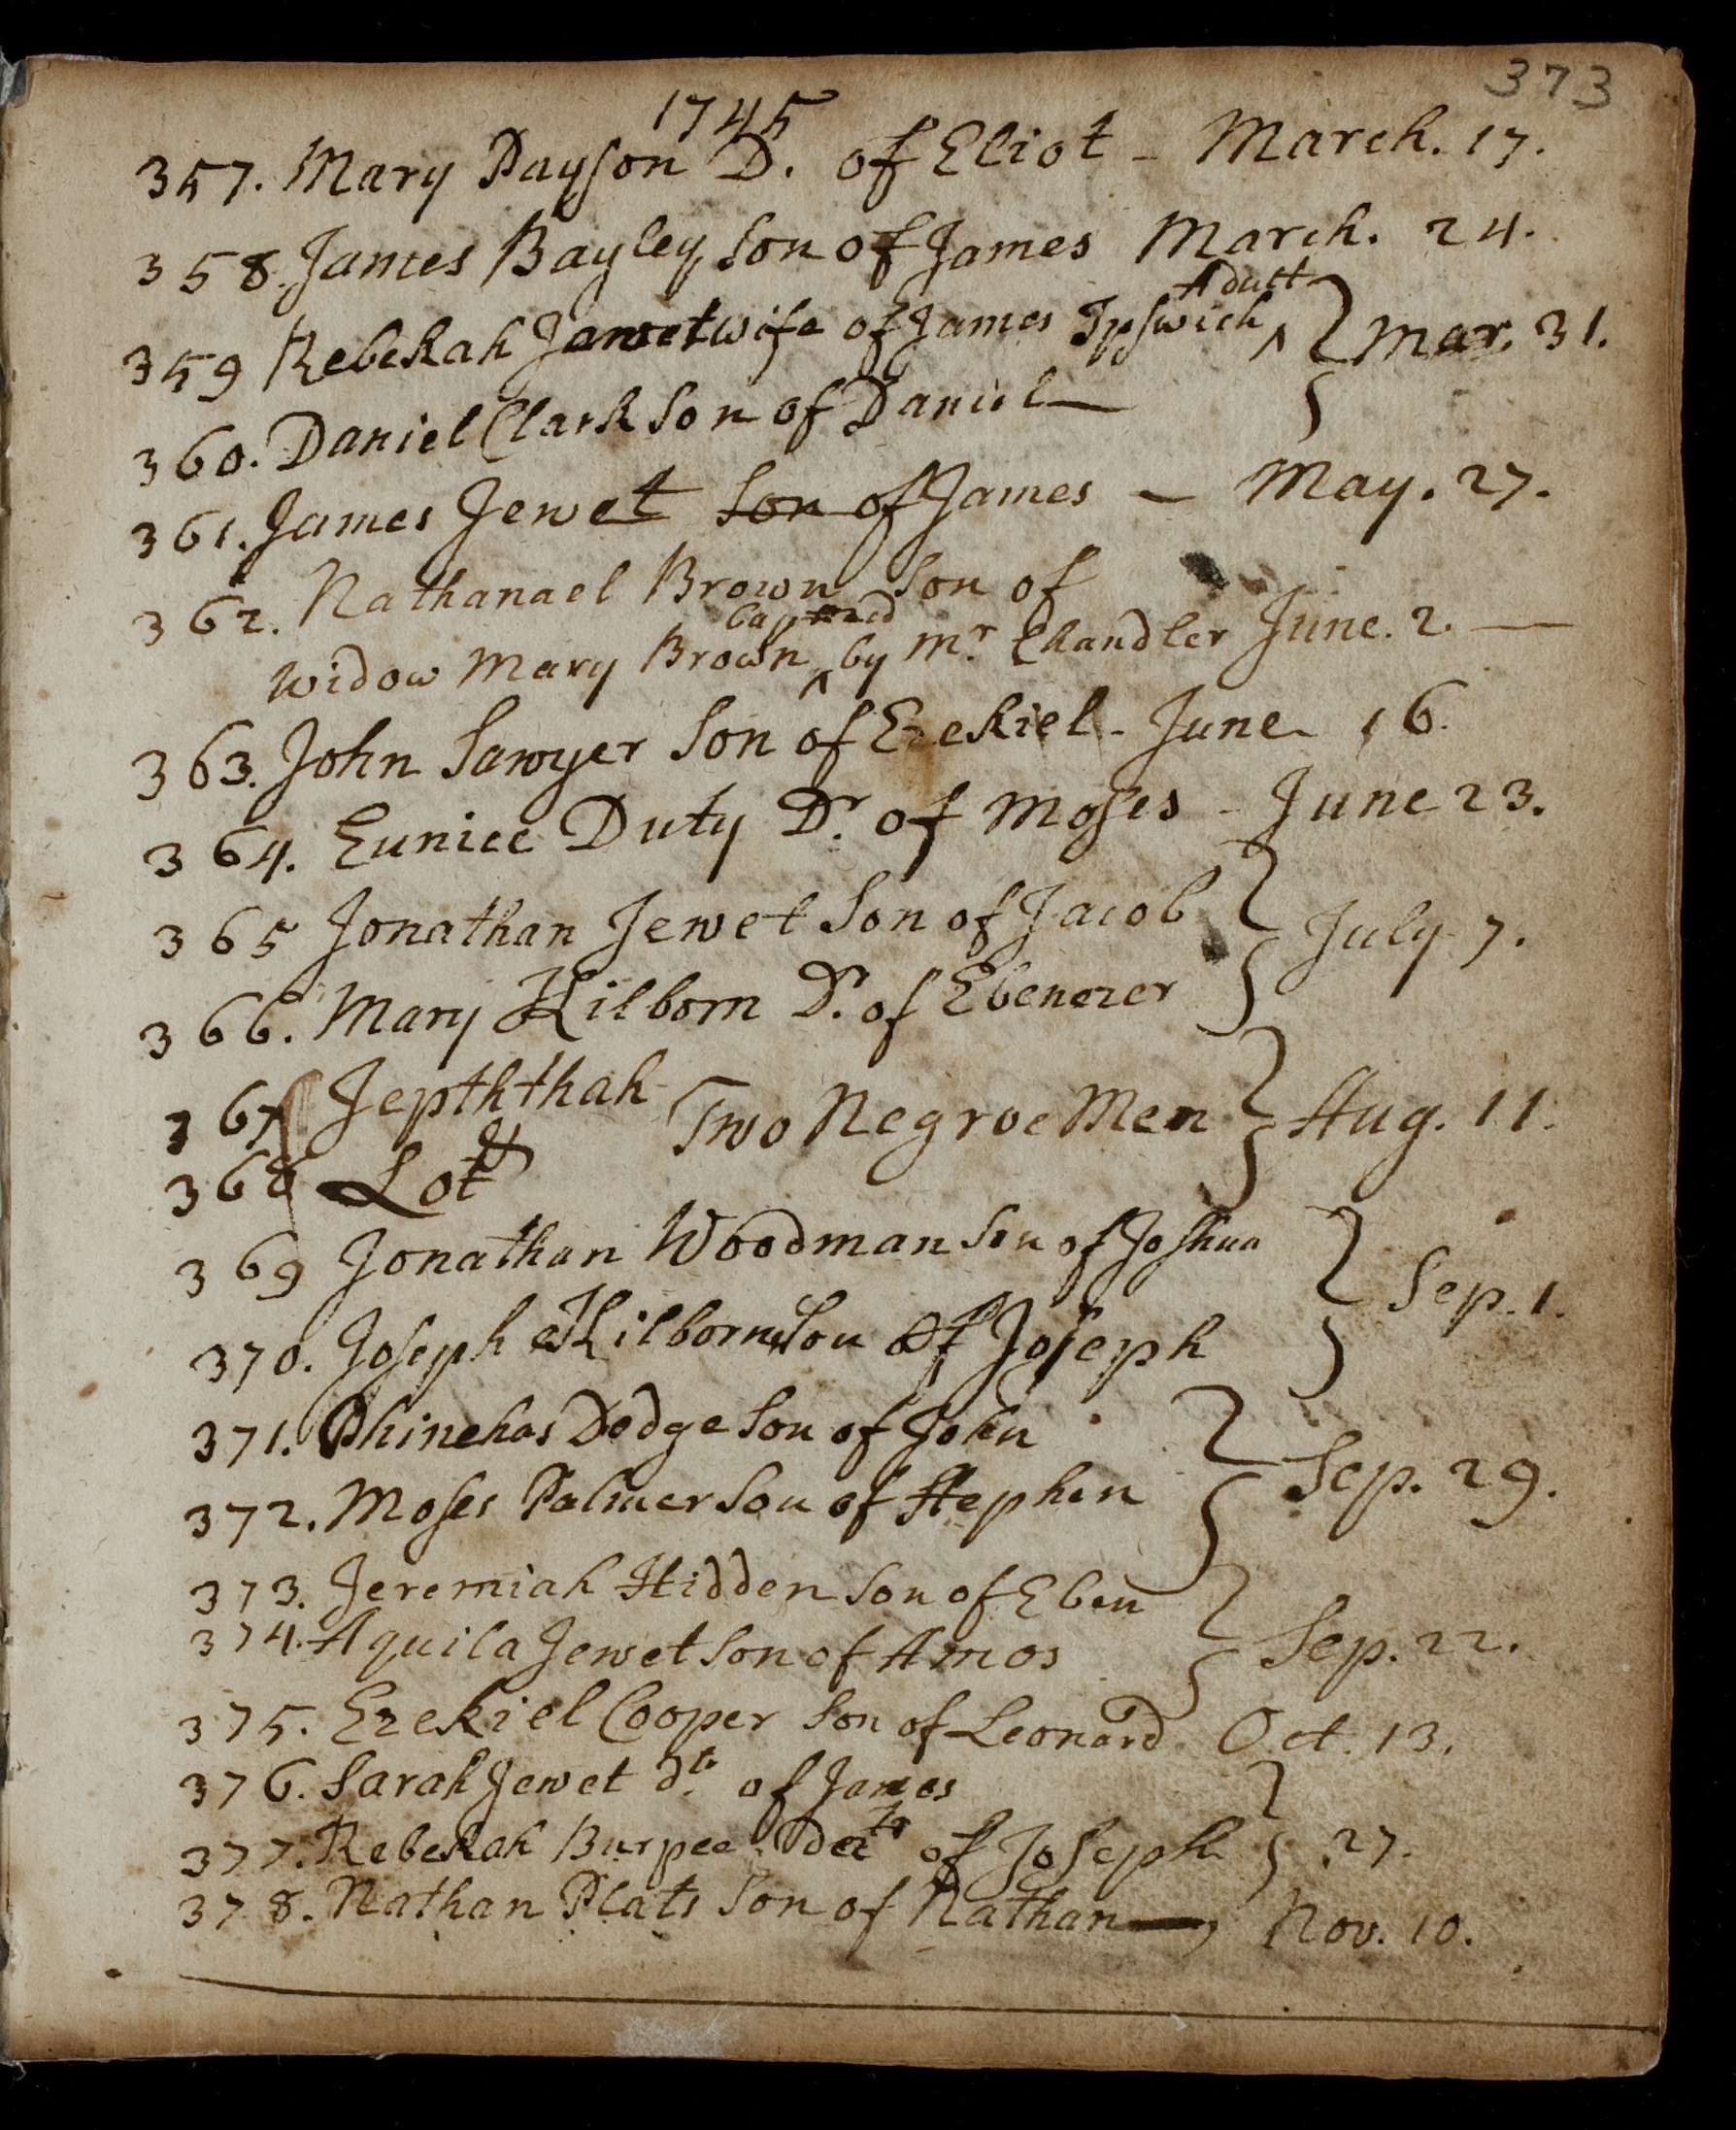 373
1745
357. Mary Payson D. of Eliot - March. 17.
358. James Bayley Son of James March. 24.
Adult
359 Rebekah Jewet wife of James Ipswich ^ } Mar. 31.
360. Daniel Clark Son of Daniel —
361. James Jewet Son of James - May. 27.
362. Nathanael Brown Son of
baptized
Widow Mary Brown ^ by Mr. Chandler June. 2. —
363. John Sawyer Son of Ezekiel - June 16.
364. Eunice Duty Dr. of Moses - June 23.
365 Jonathan Jewet Son of Jacob
} July 7.
366. Mary Kilborn Dr. of Ebenezer
367 Jepththah
& Two Negroe Men } Aug. 11.
368 Lot
369 Jonathan Woodman Son of Joshua
} Sep. 1.
370. Joseph Kilborn Son of Joseph
371. Phinehas Dodge Son of John
} Sep. 29.
372. Moses Palmer Son of Stephen
373. Jeremiah Hidden Son of Eben
} Sep. 22.
374. Aquila Jewet Son of Amos
375. Ezekiel Cooper Son of Leonard Oct. 13.
376. Sarah Jewet dtr. of James
377. Rebekah Burpee of Joseph } 27.
378. Nathan Plats Son of Nathan — Nov. 10.